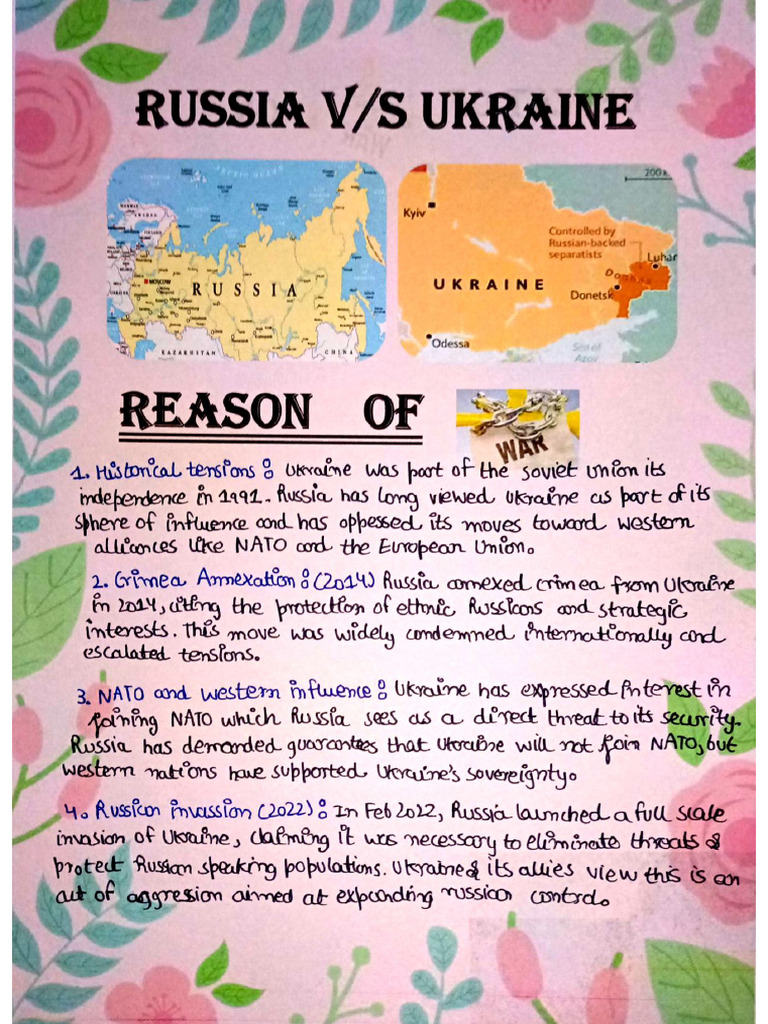 RUSSIA V/S UKRAINE
RUSSIA
MOSCOW
KAZAKHSTAN
CHINA
200 k
Kyiv
Controlled by
Russian-backed
separatists
Luhan
UKRAINE
Donbas
Donetsk
Odessa
Sea of
Azov
REASON OF
WAR
1. Historical tensions : Ukraine was part of the soviet union its
independence in 1991. Russia has long viewed Ukraine as part of its
sphere of influence and has oppessed its moves toward western
alliances like NATO and the European Union.
2. Crimea Annexation : (2014) Russia annexed crimea from Ukraine
in 2014, citing the protection of ethnic Russians and strategic
interests. This move was widely condemned internationally and
escalated tensions.
3. NATO and western influence : Ukraine has expressed interest in
joining NATO which Russia sees as a direct threat to its security.
Russia has demanded guarantees that Ukraine will not join NATO, but
western nations have supported Ukraine's sovereignty.
4. Russian invassion (2022) : In Feb 2022, Russia launched a full scale
invasion of Ukraine, claiming it was necessary to eliminate threats &
protect Russian speaking populations. Ukraine & its allies view this is an
act of aggression aimed at expanding russian control.